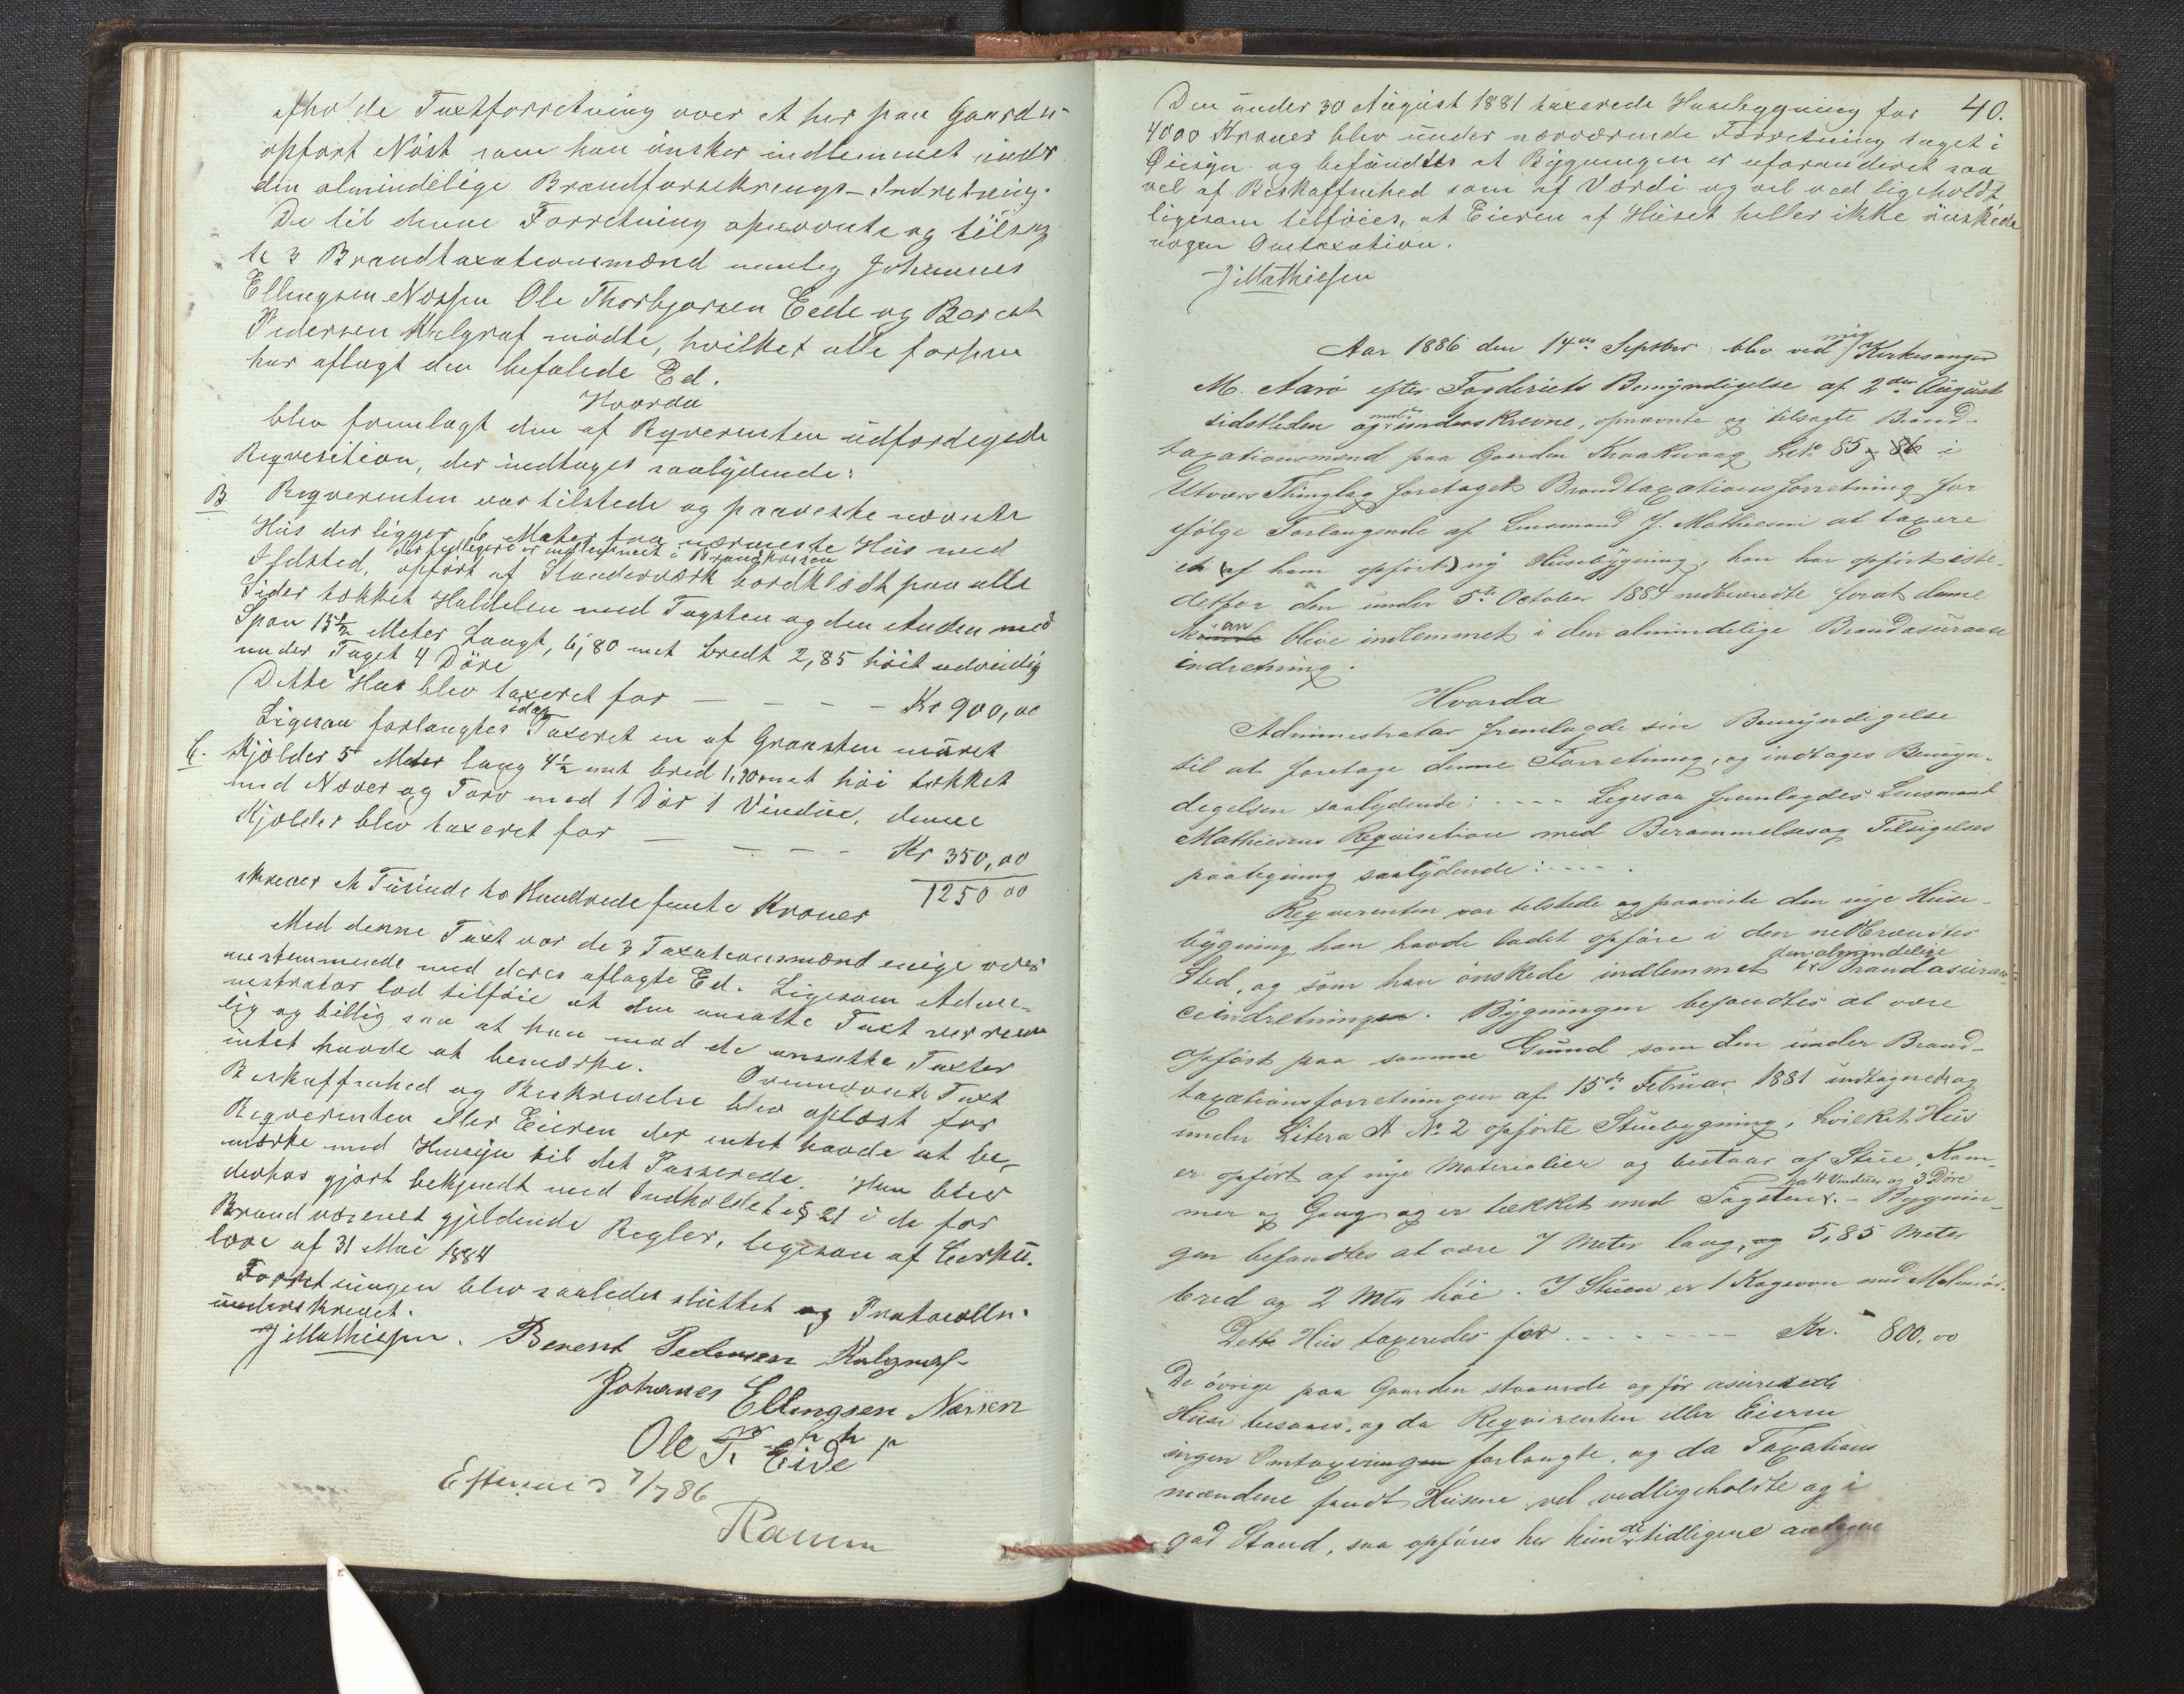 afholde Taxtforretning over et her paa Gaarden
opført Nøst som han ønsker indlemmet under
den almindelige Brandforsikrings-Indretning.
De til denne Forretning opnævnte og tilsag
te 3 Brandtaxationsmænd nemlig Johannes
Ellingsen Næssen Ole Thorbjørsen Eide og Berent
Pedersen Kalgraf mødte, hvilket alle forhen
har aflagt den befalede Ed.
Hvorda
blev fremlagt den af Reqverenten udfærdigede
Reqvisition, der indtages saalydende:
B Reqverenten var tilstede og paaviste nævnte
Hus der ligger 6 Meter fra nærmeste Hus med
Ildsted, der heller er indlemmet i Brandkassen
opført af Standerværk bordklædt paa alle
Sider tækket Haldelen med Tagsten og den Anden med
Spon 15½ Meter Langt, 6,80 met bredt 2,85 høit udvendig
under Taget 4 Døre
Dette Hus blev taxeret for — — — — Kr 900,00
Ligesaa forlangtes idag Taxeret en af Graasten müret
C. Kjølder 5 Meter lang 4½ met bred 1,90 met høi tækket
med Næver og Torv med 1 Dør 1 Vindue, denne
Kjølder blev taxeret for — — — — Kr 350,00
1250 00
skriver et Tüsinde to Hundrede femti Kroner
Med denne Taxt var de 3 Taxationsmænd enige over
enstemmende med deres aflagte Ed. Ligesom Admi-
nistrator lod tilføie at den ansatte Taxt var rime
lig og billig saa at han mod de ansatte Taxter
intet havde at bemærke. Ovennævnte Taxt
Beskaffenhed og Beskrivelse blev oplæst for
Reqverenten eller Eieren der intet havde at be-
mærke med Hensyn til det Passerede. Han blev
derhos gjort bekjendt med Indholdet i § 21 i de for
Brandvæsenet gjeldende Regler, ligesom af Cirkü-
lære af 31 Mai 1884
Forretningen blev saaledes slüttet og Protocollen
ünderskrevet.
J Mathiesen. Berent Pedersen Kalgraf
Johanes Ellingsen Næssen
m p p
Ole T. Eide
Efterseet 7/7 86
Ramm
40.
Den under 30 August 1881 taxerede Husebygning for
4000 Kroner blev ünder nærværende Forretning taget i
Øiesyn og befandtes at Bygningen er uforanderet saa
vel af Beskaffenhed som af Værdi og vel vedligeholdt
ligesom tilføies, at Eieren af Hüset heller ikke ønskede
nogen Omtaxation.
J Mathiesen
Aar 1886 den 14de Septbr blev ved mig Kirkesanger
M. Aarø efter Fogderiets Bemyndigelse af 2den August
sidstleden og med underskrevne, opnævnte og tilsagte Brand-
taxationsmænd paa Gaarden Kraakvaag Lit. 85 og 86 i
Utvær Thinglag foretaget Brandtaxationsforretning for
ifølge Forlangende af Lensmand J. Mathiesen at taxere
en (af ham opført) ny Husebygning, han har opført iste-
detfor den under 5te October 1884 nedbrændte forat denne
kan blive indlemmet i den almindelige Brandasurance
indretning.
Hvorda
Administrator fremlagde sin Bemyndigelse
til at foretage denne Forretning, og indtages Bemyn-
digelsen saalydende: - - - - Ligesaa fremlagdes Lensmand
Mathiesens Reqvisition med Berammelses og Tilsigelses
paategning saalydende: - - - - .
Reqverenten var tilstede og paaviste den nye Huse-
bygning, han havde ladet opføre i den nedbrændtes
Sted, og som han ønskede indlemmet i den almindelige Brandasuran-
ceindretningen. Bygningen befandtes at være
opført paa samme Grund som den under Brand-
taxationsforretningen af 15de Februar 1881 indtagne og
under Litera A No 2 opførte Stuebygning, hvilket Hüs
er opført af nye Materialier og bestaar af Stue, Kam-
mer og Gang og er tækket med Tagsten. - 4 Vinduer og 3 Døre Bygnin-
gen befandtes at være 7 Meter lang, og 5,85 Meter
bred og 2 Mtr høi. I Stuen er 1 Kogeovn med Malmrør.
Dette Hüs taxeredes for - - - - - - - Kr. 800.00
De øvrige paa Gaarden staaende og før asurerede
Hüse besaaes, og da Reqvirenten eller Eieren
ingen Omtaxeringen forlangte, og da Taxations
mændene fandt Husene vel vedligeholdte og i
god Stand, saa opføres her kun de tidligere antagne